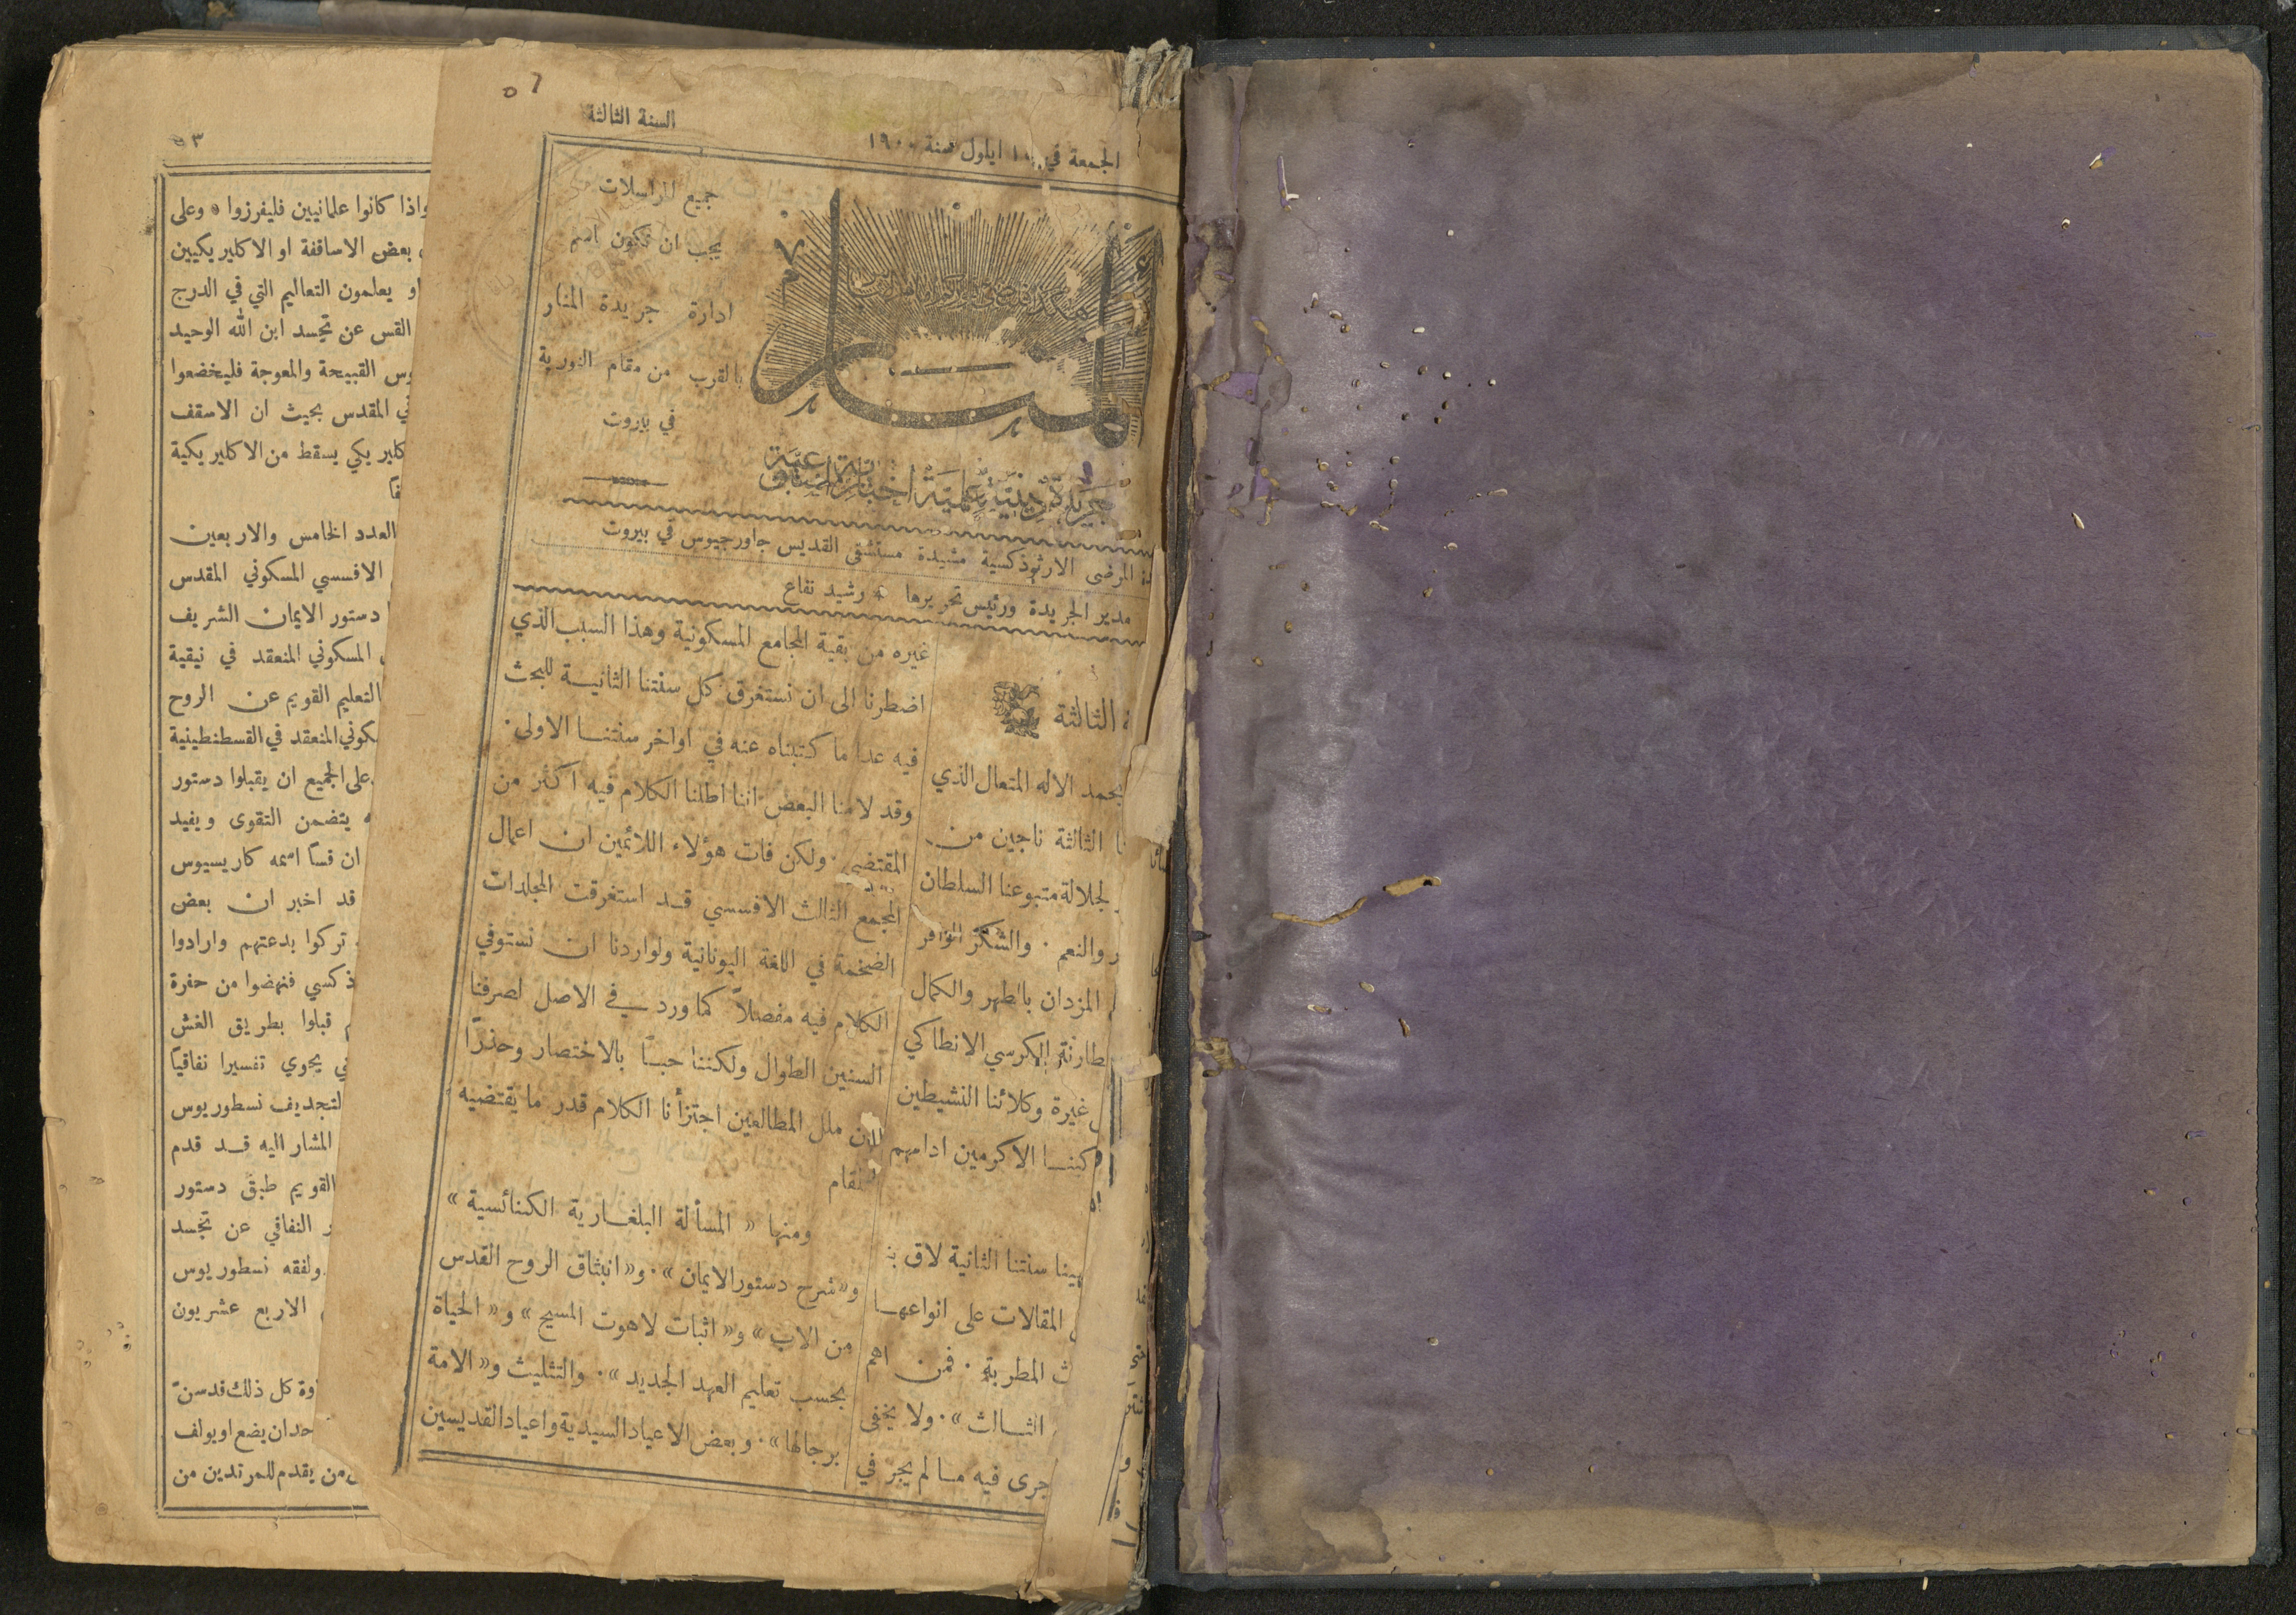 السنة الثالثة
الجمعة في ايلول سنة ١٩٠٠
المنار
جريدة دينية علمية اخبارية
جميع المراسلات
يجب ان تكون باسم
ادارة جريدة المنار
بالقرب من مقام النورية
في بيروت
المرضى الارثوذكسية مشيدة مستشفى القديس جاورجيوس في بيروت
مدير الجريدة ورئيس تحريرها * رشيد نفاع
الثالثة
بحمد الاله المتعال الذي
الثالثة ناجين من
لجلالة متبوعنا السلطان
والنعم . والشكر الوافر
المزدان بالطهر والكمال
الكرسي الانطاكي
غيرة وكلائنا النشيطين
الاكرمين ادامهم
سنتنا الثانية لاق
المقالات على انواعها
المطربة . فمن اهم
الثالث » . ولا يخفى
جرى فيه ما لم يجر في
غيره من بقية المجامع المسكونية وهذا السبب الذي
اضطرنا الى ان نستغرق كل سنتنا الثانية للبحث
فيه عدا ما كتبناه عنه في اواخر سنتنا الاولى .
وقد لامنا البعض اننا اطلنا الكلام فيه اكثر من
المقتضى . ولكن فات هؤلاء اللائمين ان اعمال
المجمع الثالث الافسسي قد استغرقت المجلدات
الضخمة في اللغة اليونانية ولو اردنا ان نستوفي
الكلام فيه مفصلاً كما ورد في الاصل لصرفنا
السنين الطوال ولكننا حباً بالاختصار وحذراً
من ملل المطالعين اجتزأنا الكلام قدر ما يقتضيه
المقام
ومنها « المسألة البلغارية الكنائسية »
و« شرح دستور الايمان » . و« انبثاق الروح القدس
من الاب » و« اثبات لاهوت المسيح » و« الحياة
بحسب تعليم العهد الجديد » . والتثليث و« الامة
برجالها » . وبعض الاعياد السيدية واعياد القديسين
٥٣
واذا كانوا علمانيين فليفرزوا * وعلى
بعض الاساقفة او الاكليريكيين
او يعلمون التعاليم التي في الدرج
القس عن تجسد ابن الله الوحيد
القبيحة والمعوجة فليخضعوا
المقدس بحيث ان الاسقف
يسقط من الاكليريكية
العدد الخامس والاربعين
الافسسي المسكوني المقدس
دستور الايمان الشريف
المسكوني المنعقد في نيقية
التعليم القويم عن الروح
المنعقد في القسطنطينية
على الجميع ان يقبلوا دستور
يتضمن التقوى ويفيد
ان قساً اسمه كاريسيوس
قد اخبر ان بعض
تركوا بدعتهم وارادوا
فنهضوا من حفرة
قبلوا بطريق الغش
يحوي تفسيرا نفاقياً
لتجديف نسطوريوس
المشار اليه قد قدم
القويم طبق دستور
النفاقي عن تجسد
ولفقه نسطوريوس
الاربع عشريون
كل ذلك قد سن
ان يضع او يولف
من يقدم للمرتدين من